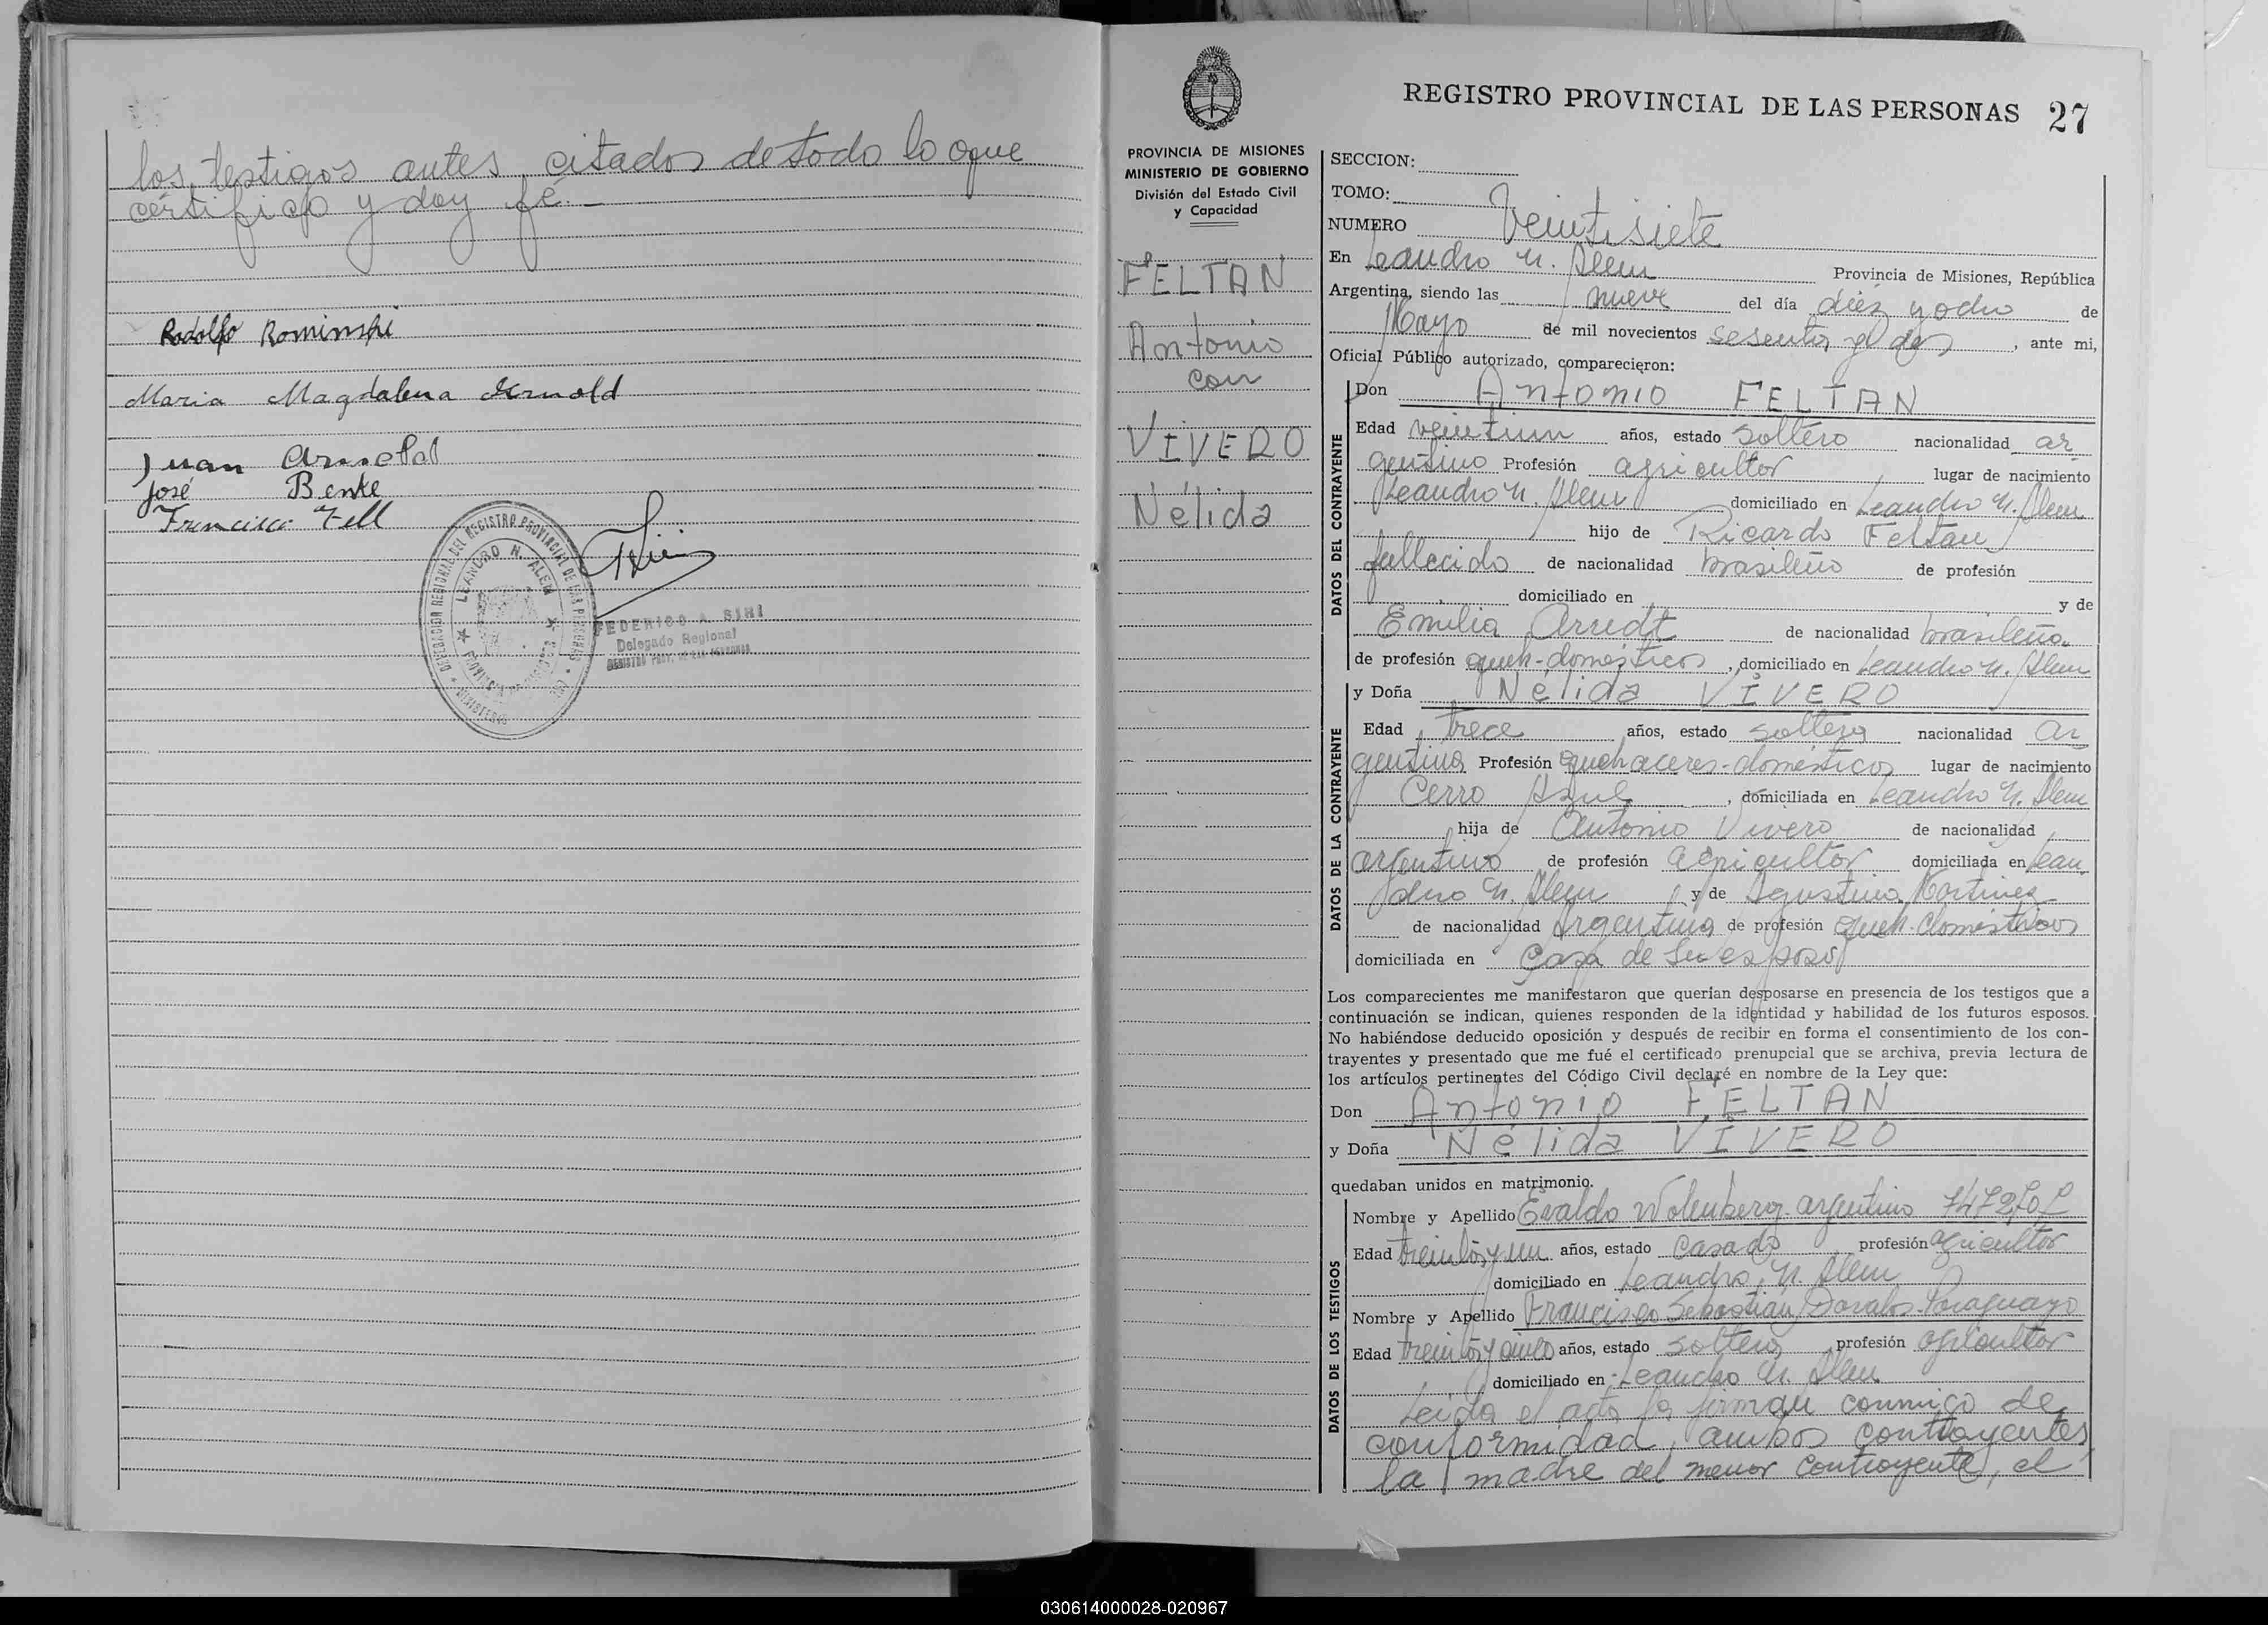 los testigos antes citados de todo lo que
certifico y doy fé.—
Rodolfo Rominski
Maria Magdalena Arnold
Juan Arnold
José Benke
Francisco Fell
DELEGACION REGIONAL DEL REGISTRO PROVINCIAL DE LAS PERSONAS
LEANDRO N. ALEM
PROVINCIA DE MISIONES
MINISTERIO
FEDERICO A. SIRI
Delegado Regional
REGISTRO PROV. DE LAS PERSONAS
REGISTRO PROVINCIAL DE LAS PERSONAS 27
PROVINCIA DE MISIONES
MINISTERIO DE GOBIERNO
División del Estado Civil
y Capacidad
FELTAN
Antonio
con
VIVERO
Nélida
SECCION:
TOMO:
NUMERO Veintisiete
En Leandro N. Alem Provincia de Misiones, República
Argentina, siendo las nueve del día diez y ocho de
Mayo de mil novecientos sesenta y dos, ante mi,
Oficial Público autorizado, comparecieron:
DATOS DEL CONTRAYENTE
Don Antonio FELTAN
Edad veintiun años, estado soltero nacionalidad ar
gentino Profesión agricultor lugar de nacimiento
Leandro N. Alem domiciliado en Leandro N. Alem
hijo de Ricardo Feltan
fallecido de nacionalidad brasileño de profesión
domiciliado en y de
Emilia Arndt de nacionalidad brasileña
de profesión queh-domésticos, domiciliado en Leandro N. Alem
DATOS DE LA CONTRAYENTE
y Doña Nélida VIVERO
Edad trece años, estado soltera nacionalidad ar
gentina Profesión quehaceres-domésticos lugar de nacimiento
Cerro Azul, domiciliada en Leandro N. Alem
hija de Antonio Vivero de nacionalidad
argentino de profesión agricultor domiciliada en Lean
dro N. Alem y de Agustina Martinez
de nacionalidad Argentina de profesión queh. domésticos
domiciliada en Casa de su esposo
Los comparecientes me manifestaron que querían desposarse en presencia de los testigos que a
continuación se indican, quienes responden de la identidad y habilidad de los futuros esposos.
No habiéndose deducido oposición y después de recibir en forma el consentimiento de los con-
trayentes y presentado que me fué el certificado prenupcial que se archiva, previa lectura de
los artículos pertinentes del Código Civil declaré en nombre de la Ley que:
Don Antonio FELTAN
y Doña Nélida VIVERO
quedaban unidos en matrimonio.
DATOS DE LOS TESTIGOS
Nombre y Apellido Evaldo Wolenberg argentino
Edad treinta y un años, estado Casado profesión agricultor
domiciliado en Leandro N. Alem
Nombre y Apellido Francisco Sebastian Davalos Paraguayo
Edad treinta y cinco años, estado soltero profesión agricultor
domiciliado en Leandro N. Alem
Leida el acta la firman conmigo de
conformidad, ambos contrayentes,
la madre del menor contrayente, el
030614000028-020967